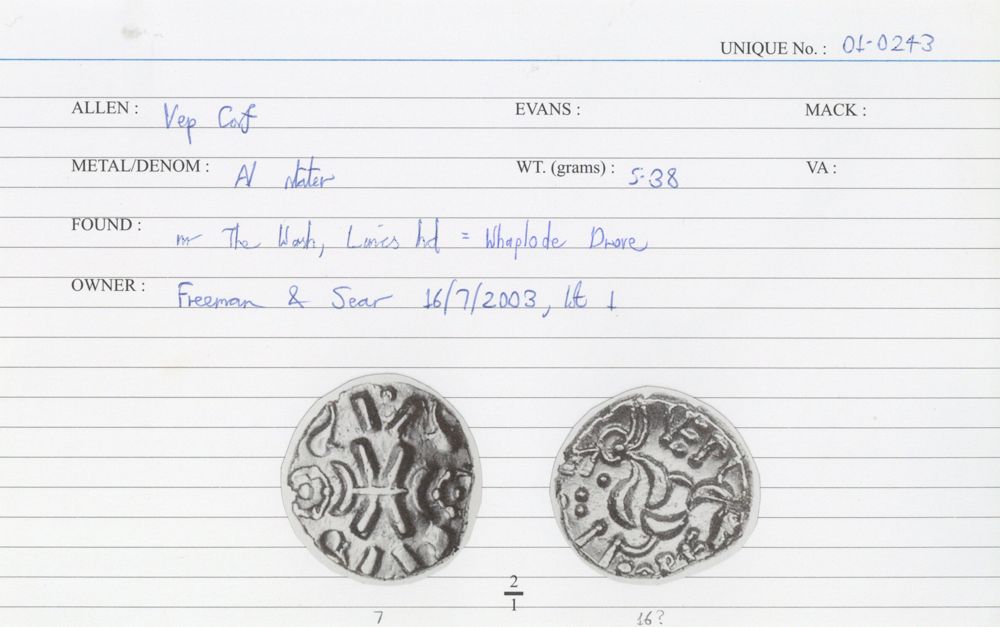 UNIQUE No. : 01-0243
ALLEN : Vep Corf EVANS : MACK :
METAL/DENOM : AV stater WT. (grams) : 5.38 VA :
FOUND : nr The Wash, Lincs hd = Whaplode Drove
OWNER : Freeman & Sear 16/7/2003, lot 1
2
1
7 16?